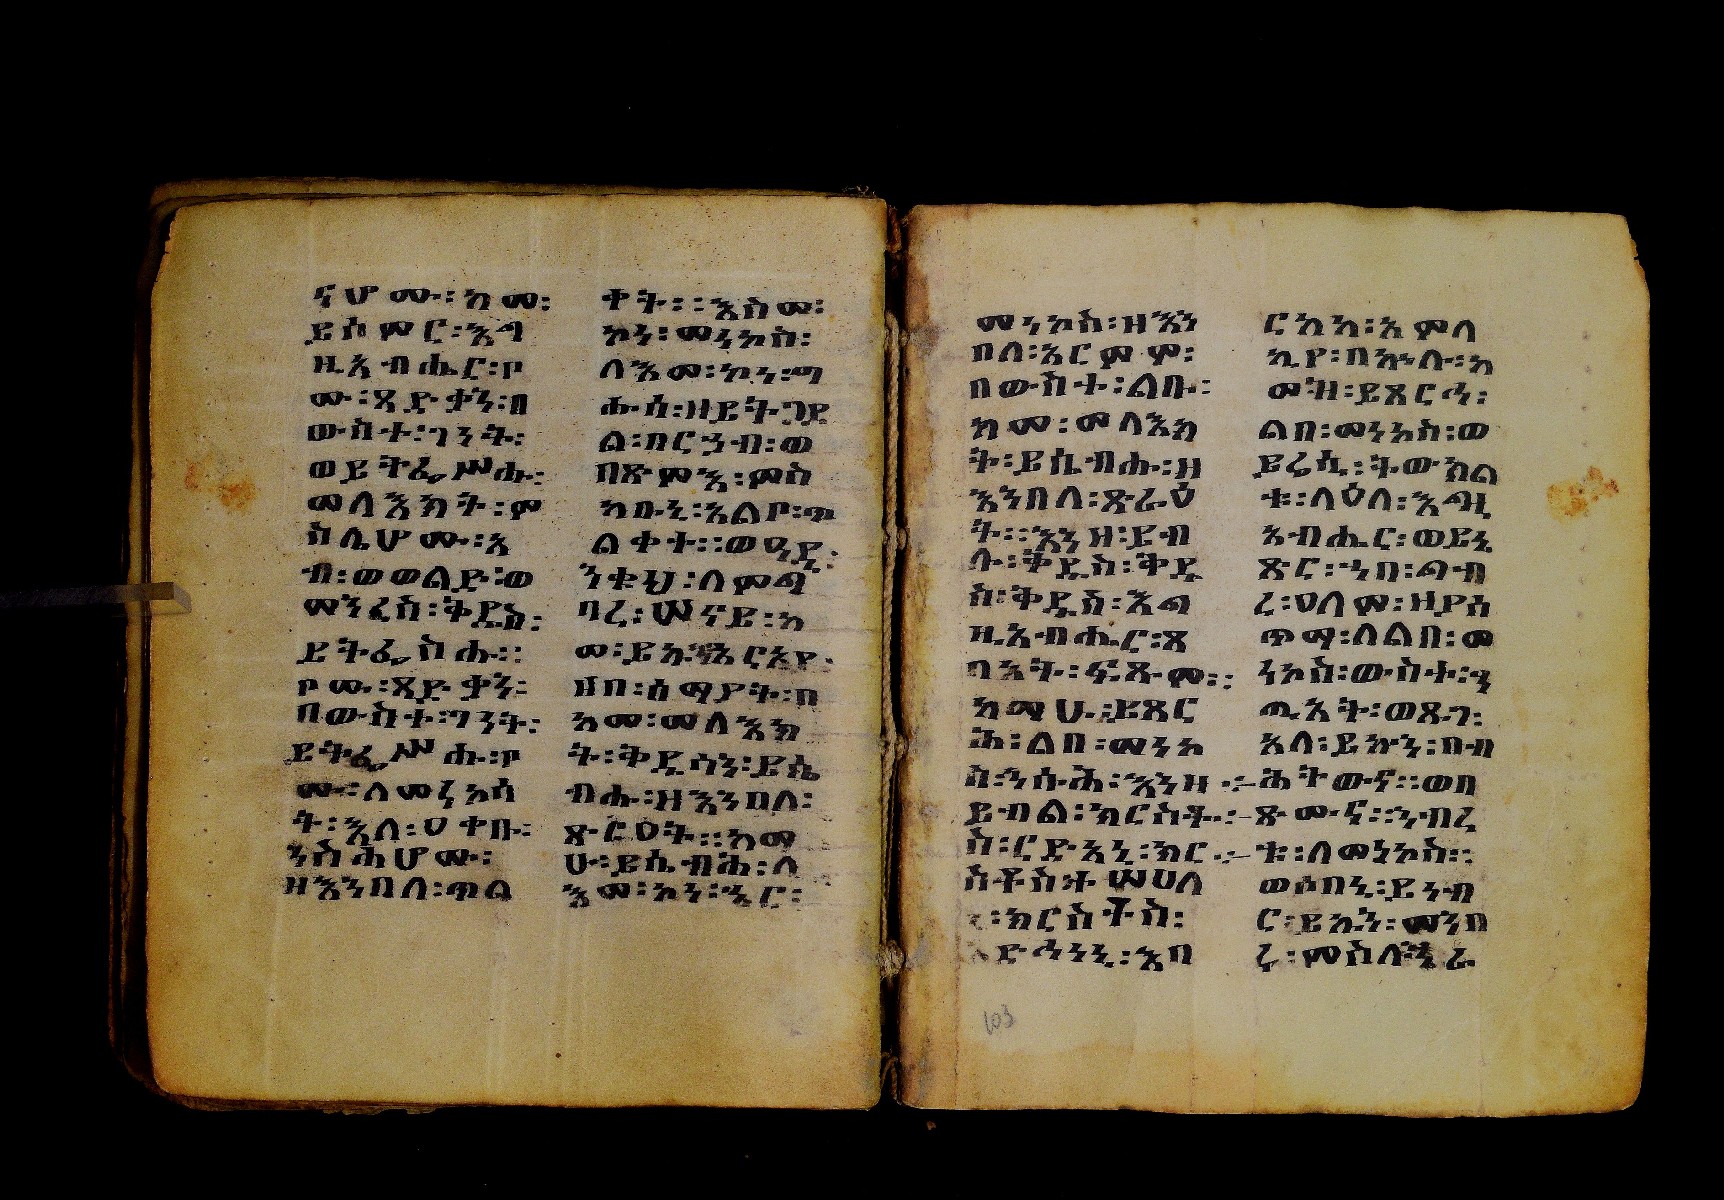 ናሆሙ፡ከመ፡
ይሰምር፡እግ
ዚአብሔር፡ዖ
ሙ፡ጻድቃን፡በ
ውስተ፡ገነት፡
ወይትፌሣሑ፡
መላእክት፡ም
ስሌሆሙ፡አ
ብ፡ወወልድ፡ወ
መንፈስ፡ቅዱስ፡
ይትፌስሑ፡፡
ዖሙ፡ጻድቃን፡
በውስተ፡ገነት፡
ይትፌሣሑ፡ዖ
ሙ፡ለመነኮሳ
ት፡እለ፡ዐቀቡ፡
ንስሐሆሙ፡
ዘእንበለ፡ጥል
ቀት፡፡እስመ፡
ኮነ፡መነኮስ፡
ለእመ፡ኮነ፡ማ
ሕሰ፡ዘይትጋደ
ል፡በርኃብ፡ወ
በጽምእ፡ምስ
ካቡኒ፡አልቦ፡ጥ
ልቀት፡፡ወዓዲ፡
ንቁህ፡ለምግ
ባረ፡ሠናይ፡ከ
መ፡ይእኅእርአዖ፡
ዘበ፡ሰማያት፡በ
ከመ፡መላእክ
ት፡ቅዱሳን፡ይሴ
ብሑ፡ዘእንበለ፡
ጽርዐት፡፡ከማ
ሁ፡ይሴብሕ፡ለ
እመ፡ኮነ፡ኄር፡
መነኮስ፡ዘእን
በለ፡አርምሞ፡
በውስተ፡ልቡ፡
ከመ፡መላእክ
ት፡ይሴብሑ፡ዘ
እንበለ፡ጽራዐ
ት፡፡እንዘ፡ይብ
ሉ፡ቅዱስ፡ቅዱ
ስ፡ቅዱስ፡እግ
ዚአብሔር፡ጸ
ባኦት፡ፍጹም፡፡
ከማሁ፡ይጸር
ሕ፡ልበ፡መነኮ
ስ፡ንሱሕ፡እንዘ
ይብል፡ክርስቶ
ስ፡ርድአኒ፡ክር
ስቶስተሠሀለ
ኒ፡ክርስቶስ፡
አድኅነኒ፡እበ
ርከከ፡አምላ
ኪየ፡በኵሉ፡ከ
መዝ፡ይጸርኅ፡
ልበ፡መነኮስ፡ወ
ይሬሲ፡ትውክል
ቱ፡ላዕለ፡እግዚ
አብሔር፡ወይነ
ጽር፡ኀበ፡ግብ
ረ፡ዐለም፡ዘያስ
ጥማ፡ለልበ፡መ
ነኮስ፡ውስተ፡ኃ
ጢአት፡ወጸጋ፡
እለ፡ይኩን፡በብ
ሕትውና፡፡ወበ
ጽሙና፡፡ነብረ
ቱ፡ለመነኮስ፡፡
ወሶበኒ፡ይነብ
ር፡ይኩን፡መንበ
ረ፡ምስለ፡ኄራ